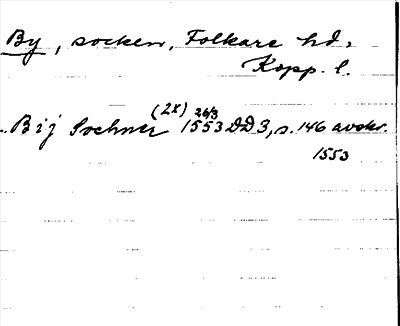 By, socken, Folkare hd.
Kopp. l.
Bij Sochner (2x) 26/3 1553 DD 3, s. 146 avskr.
1553